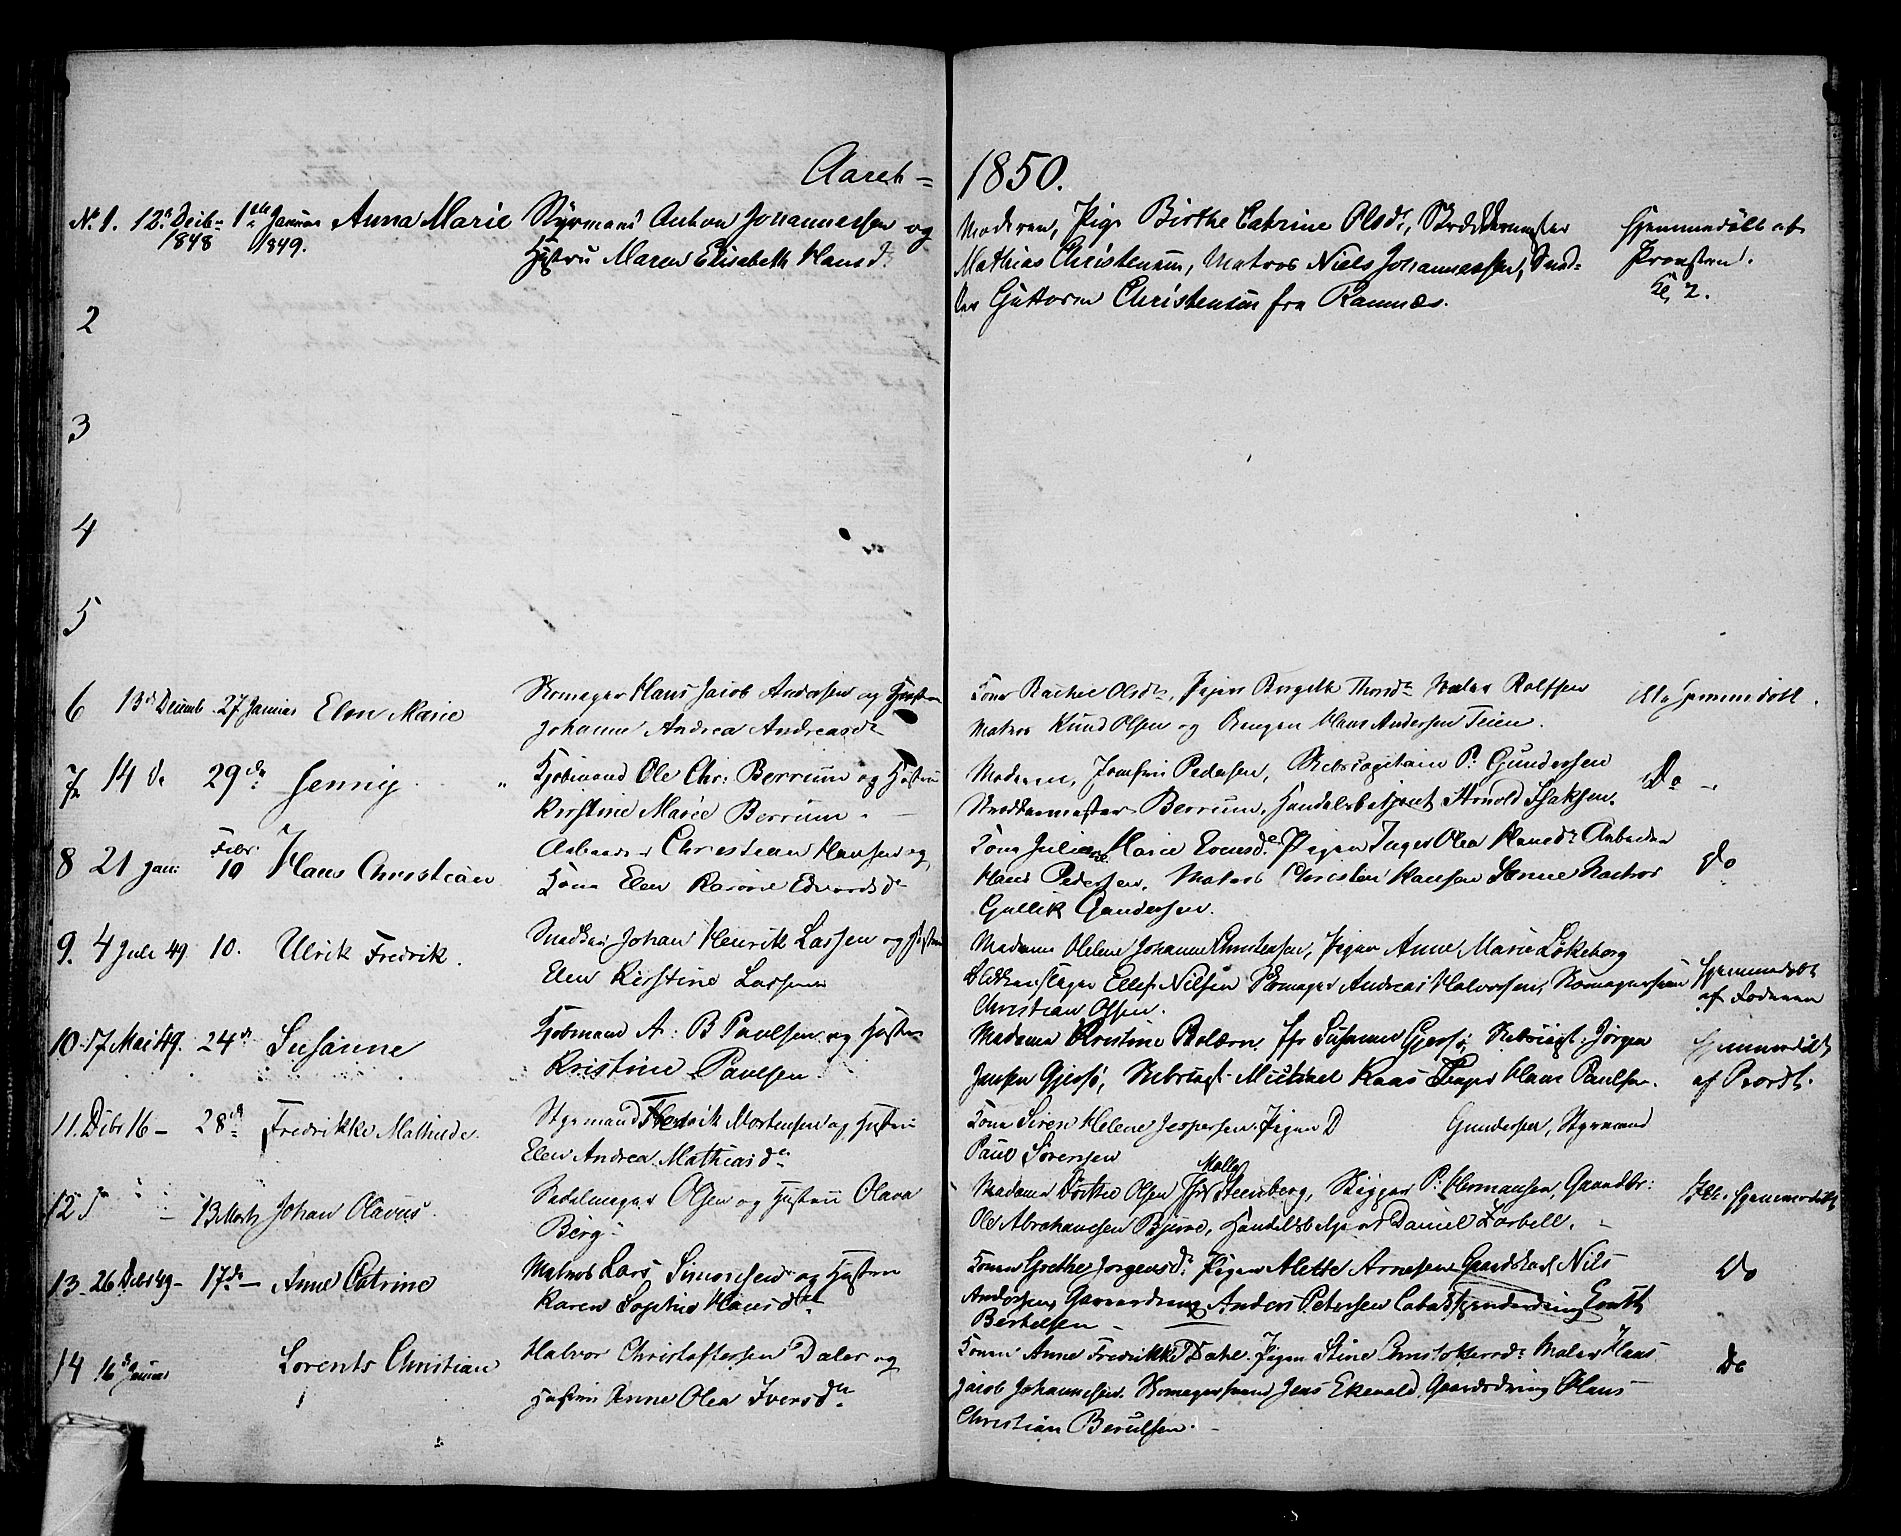 Aaret 1850.
No 1. 12te Decbr 1848 1ste Januar 1849. Anna Marie Styrmand Anton Johannessen og
Hustru Maren Elisabeth Hansdr.
Moderen, Pige Birthe Catrine Olsdr, Skræddermester
Mathias Christensen, Matros Niels Johannessen, Sned-
ker Guttorm Christensen fra Ramnæs.
Hjemmedøbt af
Provsten.
2
3
4
5
6 13de Decemb 27 Januar Elen Marie Skomager Hans Jacob Andersen og Hustru
Johanne Andrea Andreasdr
Kone Rachel Olsdr, Pigen Thorsdr Rolfsen
Matros Knud Olsen og Hans Andersen Teien.
ikke hjemmedøbt.
7 14 de 29de Jenny Kjøbmand Ole Chr: Berrum og Hustru
Kirstine Marie Berrum.
Moderen, Jomfru Pedersen, Skibscapitain P. Gundersen
Skræddermester Berrum, Handelsbetjent Arnold Isaksen.
Do
8 21 Jan: Febr 10 Hans Christian Arbeider Christian Hansen og
Kone Elen Edvardsdr
Kone Juliane Marie Evensdr. Pigen Inger Olea Hansdr Arbeider
Hans Pedersen. Matros Christen Hansen Matros
Gullik Gundersen.
do
9. 4 Juli 49 10. Ulrik Fredrik. Snedker Johan Henrik Lassen og Hustru
Elen Kirstine Lassen
Madame Helene Johanne Christensen, Pigen Anne Marie Løkeberg
Blikkenslager Ellef Nilsen Andreas Halvorsen, Skomagersvend
Christian Olsen.
Hjemmedøbt
af Foderen
10. 17 Mai 49. 24de Susanne Kjøbmand A: B Paulsen og Hustru
Kristine Paulsen
Madame Kristine Bolærn. Jfr Susanne Gjersø, Jørgen
Jensen Gjersø, Michael Kaas Hans Paulsen.
Hjemmedøbt
af Bordt.
11. Dcbr 16 28de Fredrikke Mathilde. Styrmand Fredrik Mortensen og Hustru
Elen Andrea Mathiasdr
Kone Siren Helene Jespersen. Pigen D Gundersen, Styrmand
Paul Sørensen
12 13 Marts Johan Olavus. Sadelmager Olsen og Hustru Olava
Berg
Madame Dorthe Olsen Jfr Malla Steenberg, Skipper P. Hermansen, Gaardbr:
Ole Abrahamsen Bjerre, Handelsbetjent Daniel Forbell.
Ikke hjemmedøbt
13 26 Dcbr 49 17de Anne Catrine Matros Lars Simonsen og Hustru
Karen Sophie Hansdtr
Konen Grethe Jørgensdr. Pigen Alette Arnesen Gaardskarl Nils
Andersen, Gaarddreng Anders Petersen
Berthelsen
do
14 16de Januar Lorents Christian Halvor Christoffersen Daler og
Hustru Anne Olea Iversdr
Konen Anne Fredrikke Dahl. Pigen Stine Christoffersdr Maler Hans
Jacob Johannesen. Skomagersvend Jens Ekevald. Gaardsdreng Olaus
Christian Berulsen.
Do